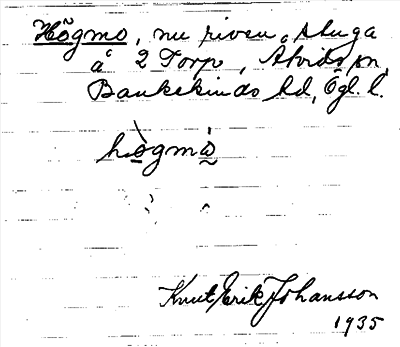 Högmo, nu riven stuga
å 2 Torp, Åtvids sn,
Bankekinds hd, Ögl. l.
hògmò
Knut Erik Johansson
1935